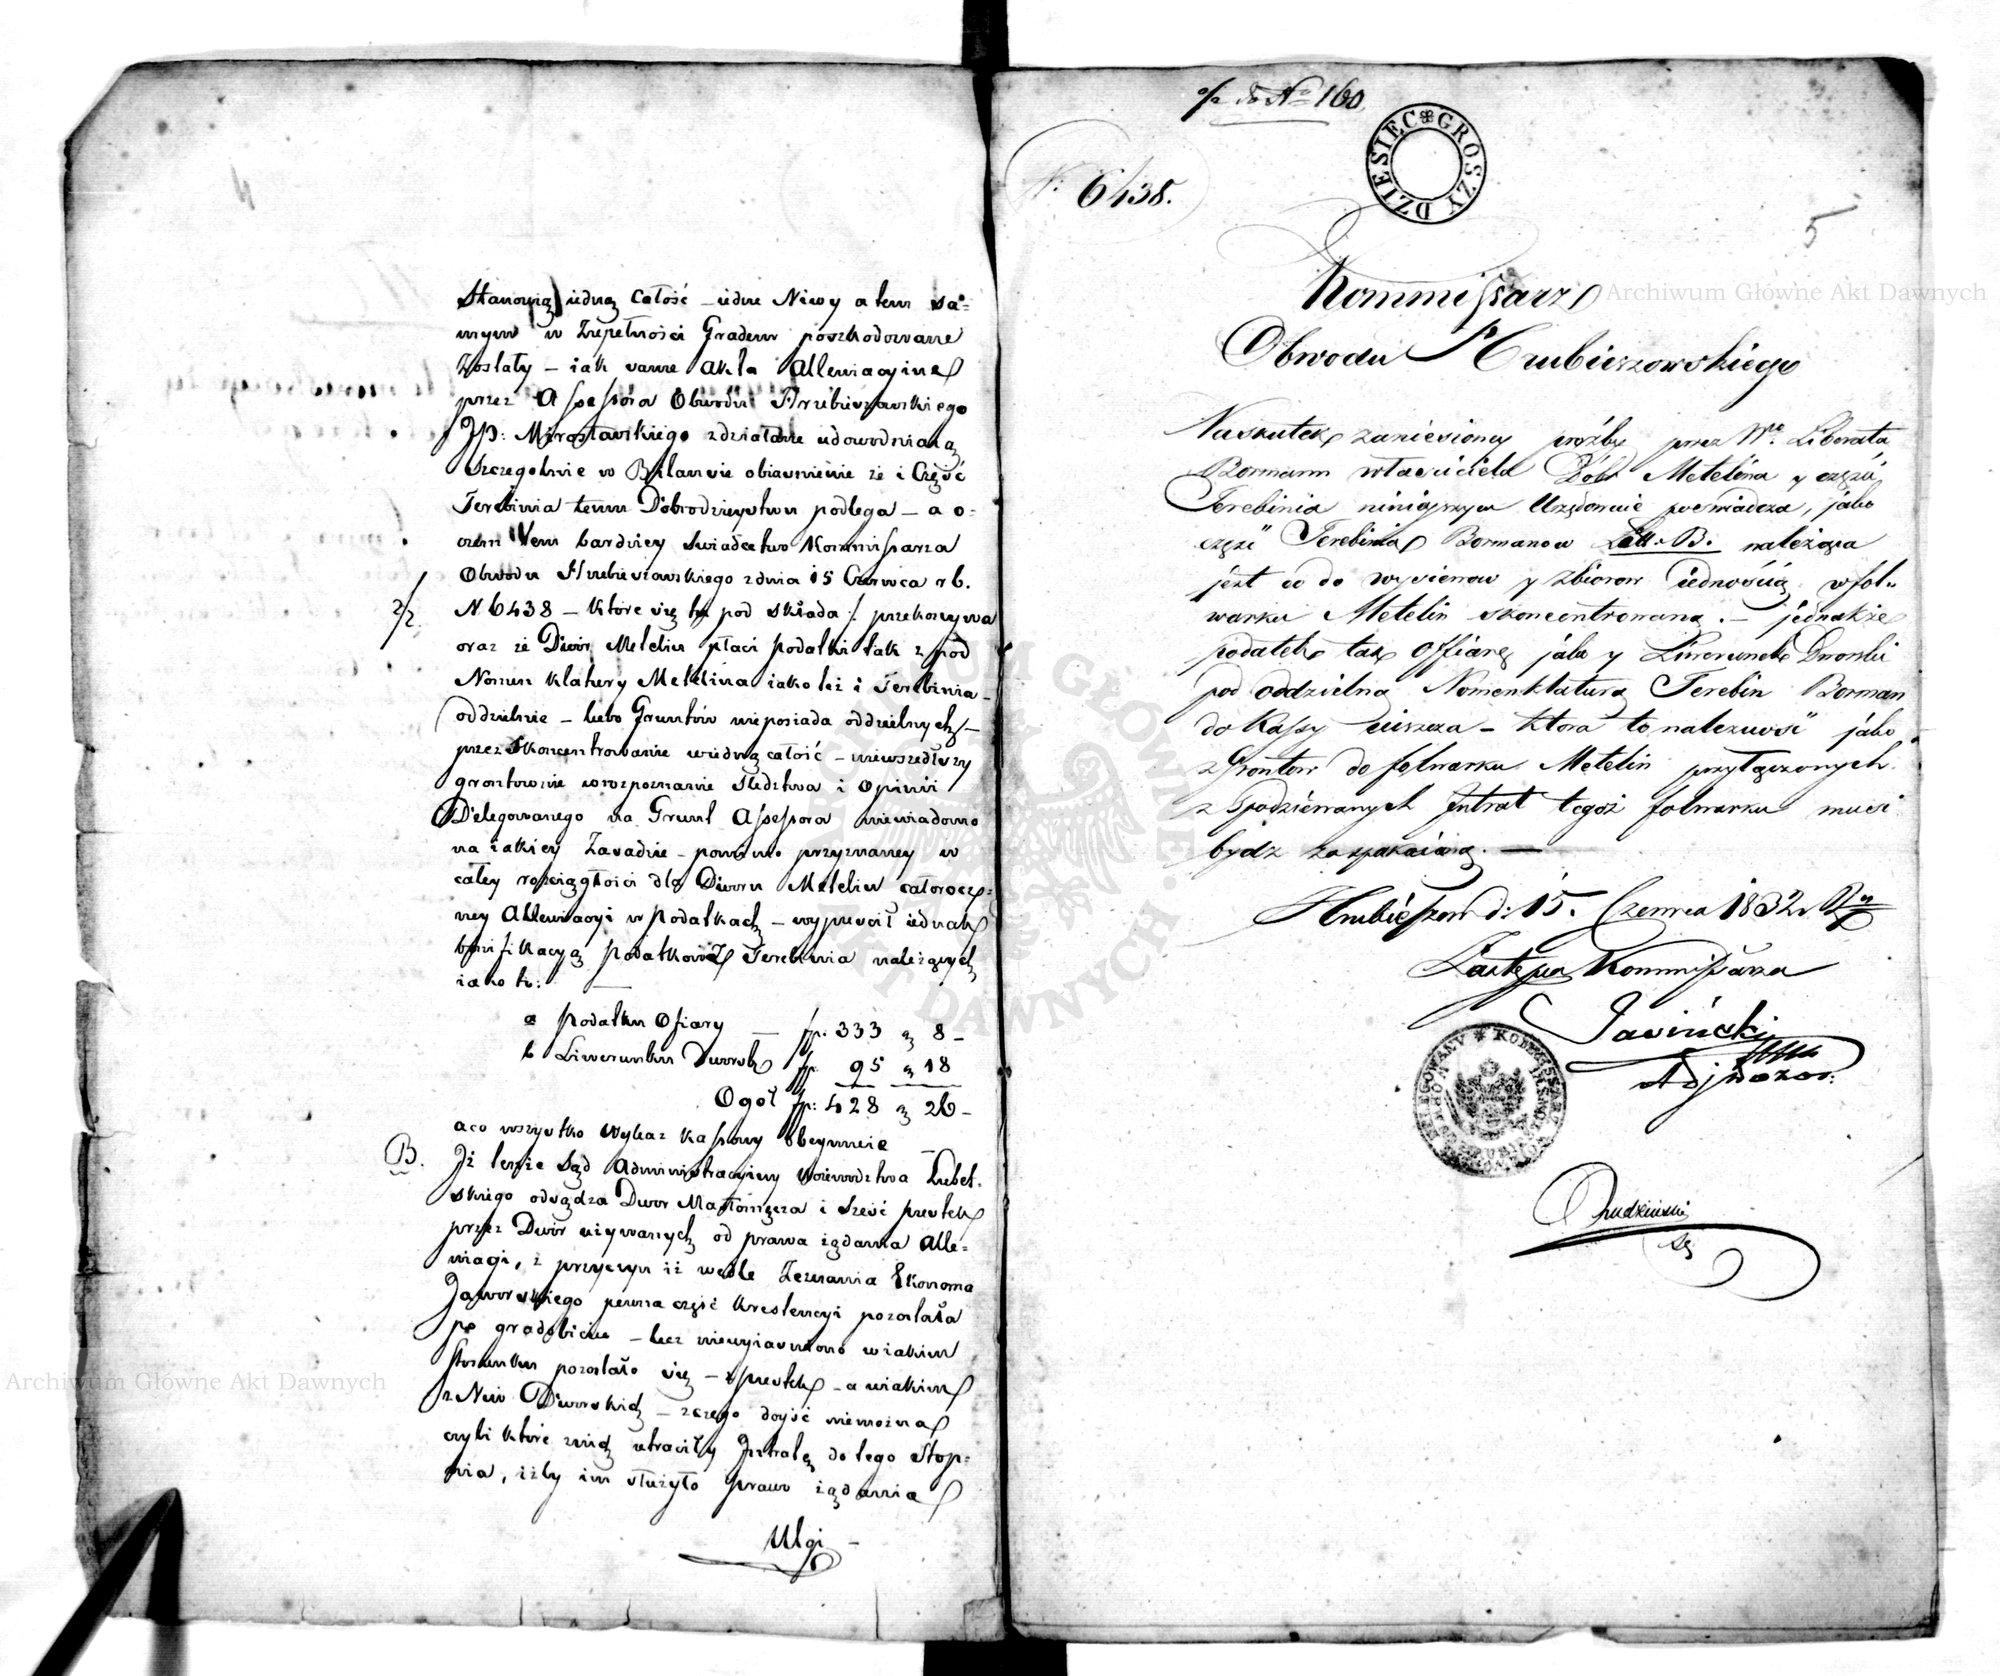 Stanowią iedną Całość – iedne Niwy a tem sa=
mym w Zupełności Gradem poszkodowane
Zostały – iak same Akta Allewiacyine
przez Assessora Obwodu Hrubieszowskiego
JP: Mirosławskiego zdziałane udowodniaią
Szczegolnie w Bilansie obiasnienie że i Część
Terebinia temu Dobrodzieystwu podlega – a o-
czem tem bardziey Swiadectwo Kommissarza
Obwodu Hrubieszowskiego z dnia 15 Czerwca rb.
2/2 N 6438 – które się tu pod składa :/ przekonywa
oraz że Dwór Metelin płaci podatki tak z pod
Nomenklatury Metelina iako też i Terebinia –
oddzielnie – lubo Gruntów nieposiada oddzielnych –
przez Skoncentrowanie w iedną całość – niewszedłszy
gruntownie w rozpoznanie Sledztwa i Opinii
Delegowanego na Grunt Assessora niewiadomo
na iakiey Zasadzie – pomimo przyznaney w
całey rozciągłości dla Dworu Metelin całorocz=
ney Allewiacyi w podatkach – wypuscił iednak
bonifikacyą Podatków Terebinia należących
iako to:
a Podatku Ofiary — fp: 333 g 8 –
b Liwerunku Dworsk fp 95 g 18
Ogół fp: 428 g 26 –
a co wszystko Wykaz Kassowy obeymuie –
B. Iż tenże Sąd Administracyiny Woiewodztwa Lubel-
skiego odsądza Dwor Małoniąża i Sześć pustek
przez Dwór używanych od prawa żądania Alle=
wiacyi, z przyczyn iż wedle Zeznania Ekonoma
Jaworskiego pewna część Krestencyi pozostała
po gradobiciu – lecz niewyiasniono w iakim
stosunku pozostało się – z pustek – a w iakim
z Niw Dworskich – z czego doyść niemożna
czyli które z nich utraciły Intratę do tego Stop=
nia, iżby im służyło prawo żądania
Ulgi –
a/2 do No 160.
N: 6438.
DZIESIĘĆ GROSZY
5
Kommissarz
Obwodu Hrubieszowskiego
Naskutek zaniesioney proźby przez We. Liborata
Bormann własciciela Dóbr Metelina y części
Terebinia ninieyszym Urzędownie poswiadcza, jako
część Terebinia Bormanow Litt. B. należąca
jest co do wysiewow y zbiorow iednością w fol=
warku Metelin skoncentrowaną. – jednakże
podatek tak Offiarę jako y Liwerunek Dworski
pod oddzielną Nomenklaturą Terebin Borman
do Kassy uiszcza – ktora to należność jako
z Grontow do folwarku Metelin przyłączonych
z Spodziewanych Intrat tegoż folwarku musi
bydz zaspakaiana. —
Hrubieszow d: 15. Czerwca 1832 Ru
Zastępca Kommissarza
Jasiński
Adj: Dozor:
Rudziński
Sę
Archiwum Główne Akt Dawnych
Archiwum Główne Akt Dawnych
ARCHIWUM GŁÓWNE AKT DAWNYCH